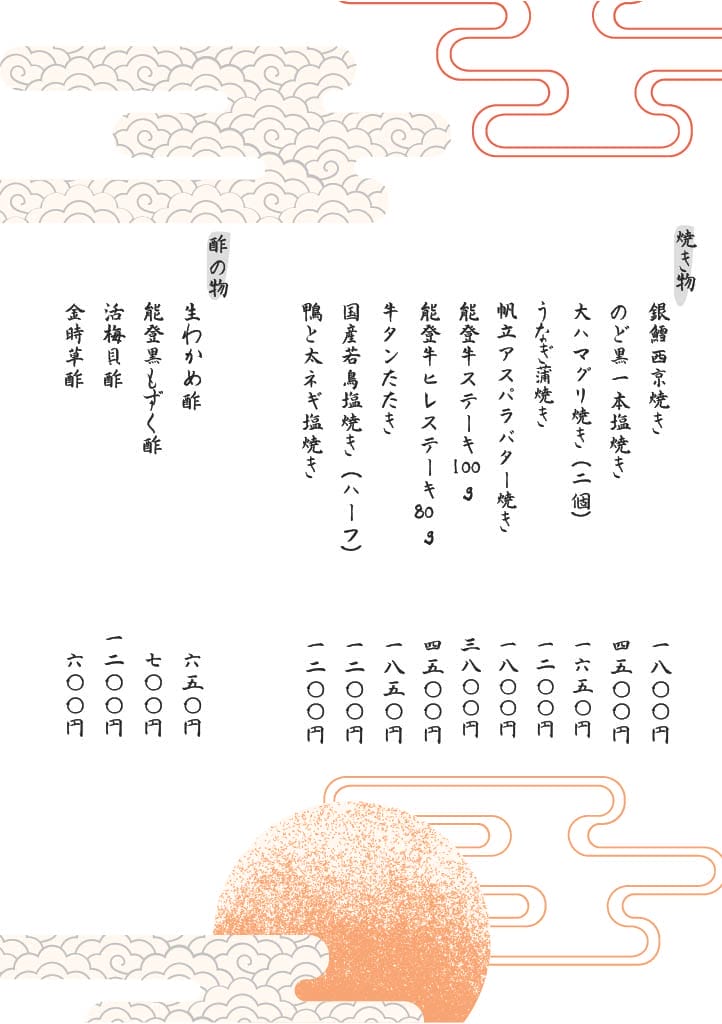 焼き物
銀鱈西京焼き 一八〇〇円
のど黒一本塩焼き 四五〇〇円
大ハマグリ焼き(二個) 一六五〇円
うなぎ蒲焼き 一二〇〇円
帆立アスパラバター焼き 一八〇〇円
能登牛ステーキ100g 三八〇〇円
能登牛ヒレステーキ80g 四五〇〇円
牛タンたたき 一八五〇円
国産若鳥塩焼き(ハーフ) 一二〇〇円
鴨と太ネギ塩焼き 一二〇〇円
酢の物
生わかめ酢 六五〇円
能登黒もずく酢 七〇〇円
活梅貝酢 一二〇〇円
金時草酢 六〇〇円